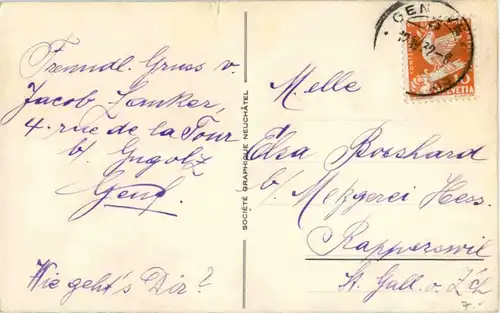 Freundl. Gruss v.
Jacob Zanker,
4. rue de la Tour
b/
Genf.
Wie geht's Dir?
SOCIÉTÉ GRAPHIQUE NEUCHÂTEL
HELVETIA
Melle
Elsa Bosshard
b/ Metzgerei Hess.
Rapperswil
St. Gall. o. Z'ch